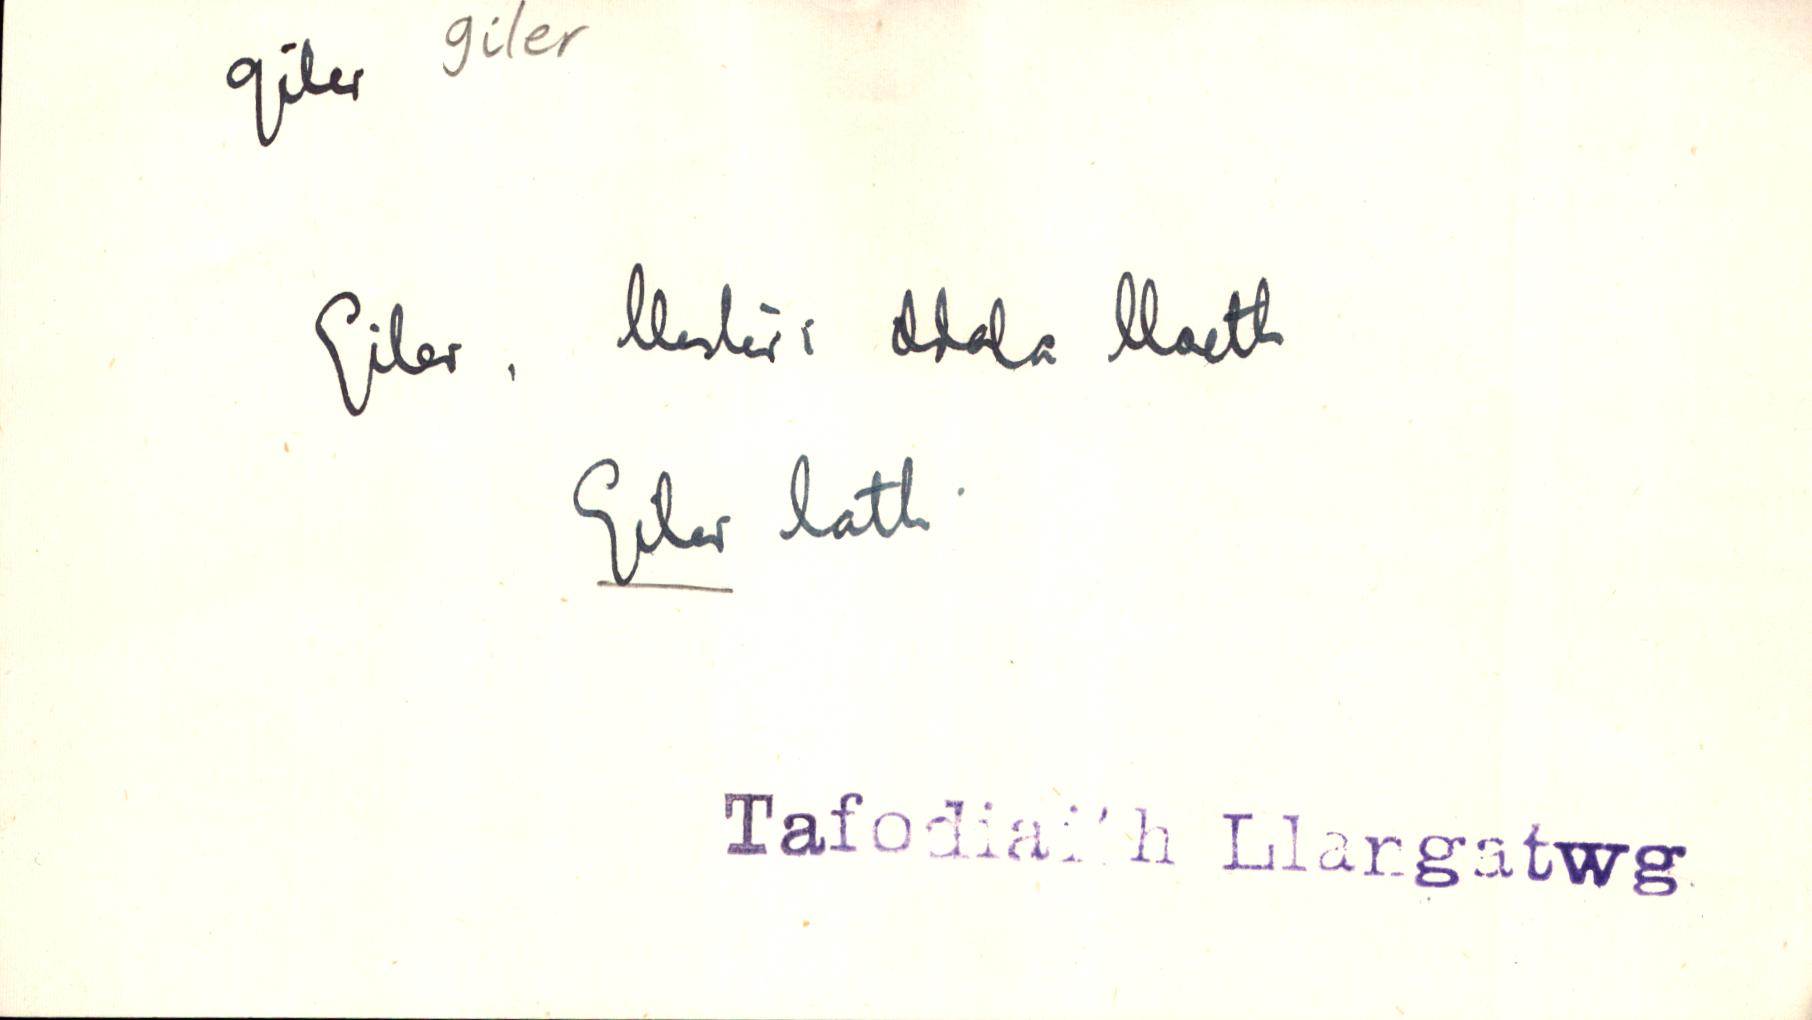 giler giler
Giler, llestr i ddala llaeth
Giler lath.
Tafodiaith Llangatwg